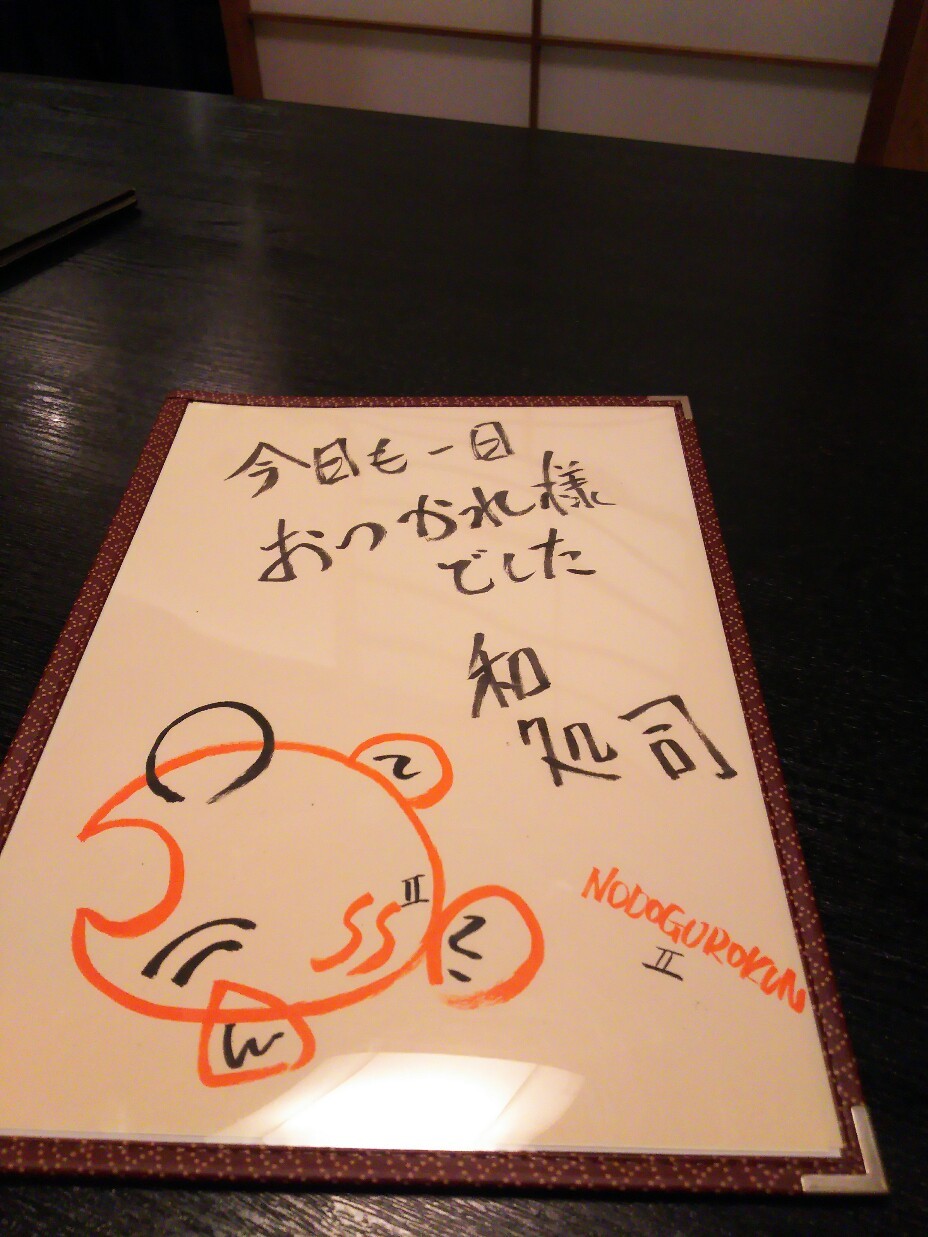 今日も一日
おつかれ様
でした
和
処司
て
II
で
ん
NODOGUROKUN
II